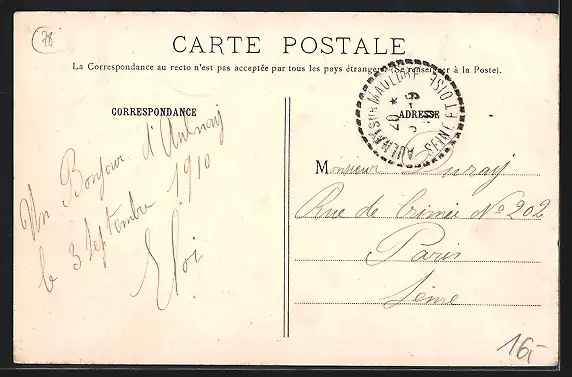 78
CARTE POSTALE
La Correspondance au recto n'est pas acceptée par tous les pays étrangers (Se renseigner à la Poste).
CORRESPONDANCE
ADRESSE
AULNAY SUR MAULDRE
SEINE ET OISE
Un Bonjour d'Aulnay
le 3 Septembre 1910
Eloi
Monsieur Duray
Rue de Crimée No 202
Paris
Seine
16,-